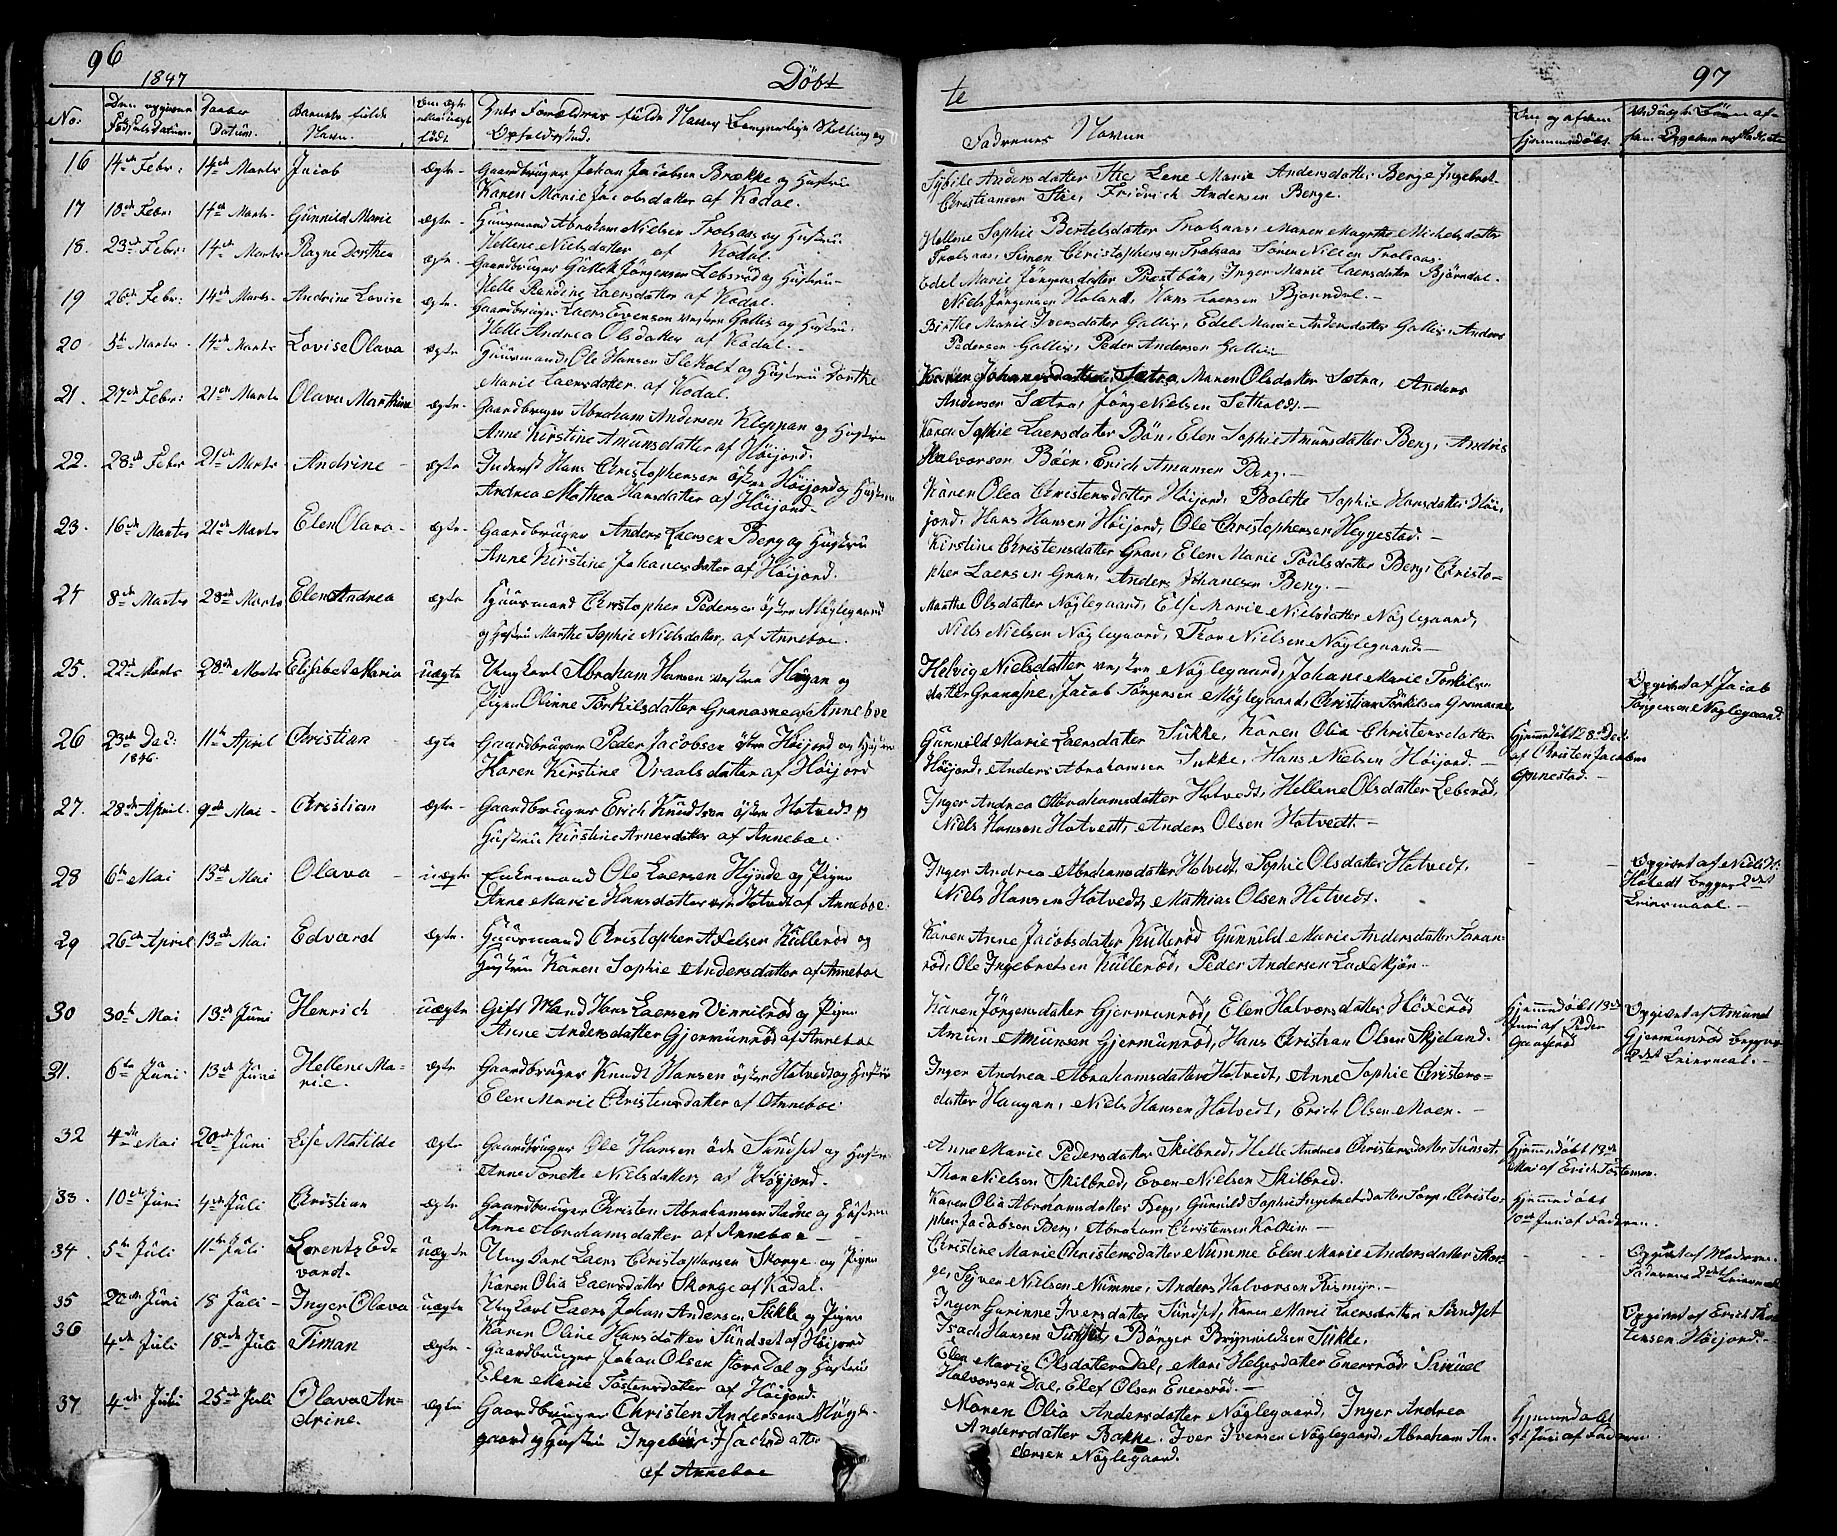 96
1847
Döbte
97
No:
Fødsels Datum.
Daabs Datum.
Barnets fulde Navn.
Faddernes Navne
16 14de Febr: 14de Marts Jacob ægte Gaardbruger Johan Jacobsen Brække og Hustru
Karen Marie Jacobsdatter af Kodal.
Sybile Andersdatter Stie, Lene Marie Andersdatter Berge, Ingebret
Christiansen Stie, Fridrich Andersen Berge.
17 18de Febr: 14de Marts Gunnild Marie ægte Huusmand Abraham Nielsen Trolsaas og Hustru
Hellene Nielsdatter af Kodal.
Hellene Sophie Bertelsdatter Trolsaas, Maren Magrethe Michelsdatter
Trolsaas, Simen Christophersen Trolsaas, Sören Nilsen Trolsaas.
18. 23de Febr: 14de Marts Ragne Dorthea ægte Gaardbruger Gullek Jörgensen Lebsröd og Hustru
Helle Rendine Laersdatter af Kodal.
Edel Marie Jörgensdatter Præstbön, Inger Marie Laersdatter Bjørndal.
Niels Jörgensen Holand, Hans Laersen Bjørndal.
19 26de Febr: 14de Marts Andrine Lovise ægte Gaardbruger Laers Evensen vestre Gallis og Hustru
Helle Andrea Olsdatter af Kodal.
Birthe Marie Iversdatter Gallis, Edel Marie Andersdatter Gallis, Anders
Pedersen Gallis, Peder Andersen Gallis
20 5te Marts 14de Marts Lovise Olava ægte Huusmand Ole Hansen Sletholt og Hustru Dorthe
Marie Laersdatter af Kodal.
Karen Johannesdatter Sætra, Maren Olsdatter Sætra, Anders
Andersen Sætra, Jörg Nielsen Setholdt.
21. 27de Febr: 21de Marts Olava Marthine ægte Gaardbruger Abraham Andersen Kleppan og Hustru
Anne Kirstine Amunsdatter af Höijord.
Karen Sophie Laersdatter Bön, Elen Sophie Amunsdatter Berg, Andrias
Halvorsen Böen, Erich Amunsen Berg.
22. 28de Febr 21de Marts Andrine ægte Inderst Hans Christophersen östre Höijord og Hustru
Andrea Mathea Hansdatter af Höijord.
Karen Olea Christensdatter Höijord, Bolette Sophie Hansdatter Höi-
jord, Hans Hansen Höijord, Ole Christophersen Heggestad.
23. 16de Marts 21de Marts Elen Olava ægte Gaardbruger Anders Laersen Berg og Hustru
Anne Kirstine Johanesdatter af Höijord.
Kirstine Christensdatter Gran, Elen Marie Poulsdatter Berg, Christo-
pher Laersen Gran, Anders Johanesen Berg.
24 8de Marts 28de Marts Elen Andrea ægte Huusmand Christopher Pedersen östre Nöglegaard
og Hustru Marthe Sophie Nielsdatter af Anneboe.
Marthe Olsdatter Nöglegaard, Else Marie Nielsdatter Nöglegaard,
Niels Nielsen Nöglegaard, Thor Nielsen Nöglegaard
25. 22de Marts 28de Marts Elisabet Maria uægte Ungkarl Abraham Hansen vestre Haugan og
Pigen Olinne Torkilsdatter Granasne af Anneboe
Helvig Nielsdatter vestre Nöglegaard, Johane Marie Torkils-
datter Granasne, Jacob Törgersen Nöglegaard, Christian Torkilsen Granasne
Opgivet af Jacob
Törgersen Nöglegaard.
26 23de Dec: 1846. 11te April Christian ægte Gaardbruger Peder Jacobsen östre Höijord og Hustru
Karen Kirstine Vraalsdatter af Höijord
Gunnild Marie Laersdatter Sukke, Karen Olia Christensdatter
Höijord, Anders Abrahamsen Sukke, Hans Nielsen Höijord.
Hjemmedöbt 28de Dec:
af Christen Jacobsen
Gonnestad.
27. 28de April. 9de Mai Christian ægte Gaardbruger Erich Knudsen östre Hotvedt og
Hustru Kirstine Arnesdatter af Anneboe.
Inger Andrea Abrahamsdatter Hotvedt, Hellene Olsdatter Lebsröd,
Niels Hansen Hotvedt, Anders Olsen Hotvedt.
28 6te Mai 13de Mai Olava uægte Enkemand Ole Laersen Hynde og Pigen
Anne Marie Hansdatter Hotvedt af Anneboe.
Inger Andrea Abrahamsdatter Hotvedt, Sophie Olsdatter Hotvedt,
Niels Hansen Hotvedt, Mathias Olsen Hotvedt.
Opgivet af Niels H:
Hotvedt begges 2det
Leiermaal.
29 26de April 13de Mai Edvard ægte Huusmand Christopher Axelsen Kulleröd og
Hustru Karen Sophie Andersdatter af Anneboe
Karen Anne Jacobsdatter Kulleröd Gunnild Marie Andersdatter Foran-
röd, Ole Ingebretsen Kulleröd, Peder Andersen Laxeskjör
30 30te Mai 13de Juni Henrich uægte Gift Mand Hans Laersen Vinnilröd og Pigen
Anne Andersdatter Gjermunröd af Anneboe
Karen Jörgensdatter Gjermunröd, Elen Halvorsdatter Höxeröd
Amun Amunsen Gjermunröd, Hans Christian Olsen Skjeland.
Hjemmedöbt 13de
Juni af Peder
Opgivet af Amund
Gjermunröd begges
2det Leiermaal.
31. 6te Juni 13de Juni Hellene Ma-
rie. ægte Gaardbruger Knudt Hansen östre Hotvedt og Hustru
Elen Marie Christensdatter af Anneboe
Inger Andrea Abrahamsdatter Hotvedt, Anne Sophie Christens-
datter Haugan, Niels Hansen Hotvedt, Erich Olsen Moen.
32 4de Mai 20de Juni Else Matilde ægte Gaardbruger Ole Hansen öde Sundset og Hustru
Anne Torette Nielsdatter af Höijord.
Anne Marie Pedersdatter Skilbred, Helle Andrea Christensdatter Sunset,
Thor Nielsen Skilbred, Even Nielsen Skilbred.
Hjemmedöbt 13de
Mai af Erich Tostensen.
33. 10de Juni 4de Juli Christian ægte Gaardbruger Christen Abrahamsen Aasne og Hustru
Anne Abrahamsdatter af Anneboe
Karen Olia Abrahamsdatter Berg, Gunnild Sophie Ingebretsdatter Torp, Christo-
pher Jacobsen Berg, Abraham Christensen
Hjemmedöbt
10de Juni af Faderen.
34. 5te Juli 11te Juli Lorentz Ed-
vardt. uægte Ungkarl Laers Christophersen Skorge og Pigen
Karen Olia Laersdatter Skorge af Kodal.
Christine Marie Christensdatter Numme Elen Marie Andersdatter Skor-
ge, Syver Nielsen Numme, Anders Halvorsen Rismyr.
Opgivet af Moderen
Faderens 2det Leiermaal
35 20de Juni 18 Juli Inger Olava uægte Ungkarl Laers Johan Andersen Sukke og Pigen
Karen Oline Hansdatter Sundset af Höijord
Inger Gurinne Iversdatter Sundset, Karen Marie Laersdatter Sundset
Isach Hansen Sunset, Börger Brynnildsen Sukke.
Opgivet af Erich Thos-
tensen Höijord.
36 4de Juli 18de Juli Timan ægte Gaardbruger Johan Olsen store Dal og Hustru
Elen Marie Tostensdatter af Höijord.
Elen Marie Olsdatter Dal, Mari Helgesdatter Enersröd, Samuel
Halvorsen Dal, Elef Olsen Enersröd.
37 4de Juli 25de Juli Olava An-
drine. ægte Gaardbruger Christen Andersen Nögle-
gaard og Hustru Ingebör Isachsdatter
af Anneboe
Maren Olia Andersdatter Nöglegaard, Inger Andrea
Andersdatter Bakke, Iver Iversen Nöglegaard, Abraham An-
dersen Nöglegaard.
Hjemmedöbt
5te Juli af Faderen.